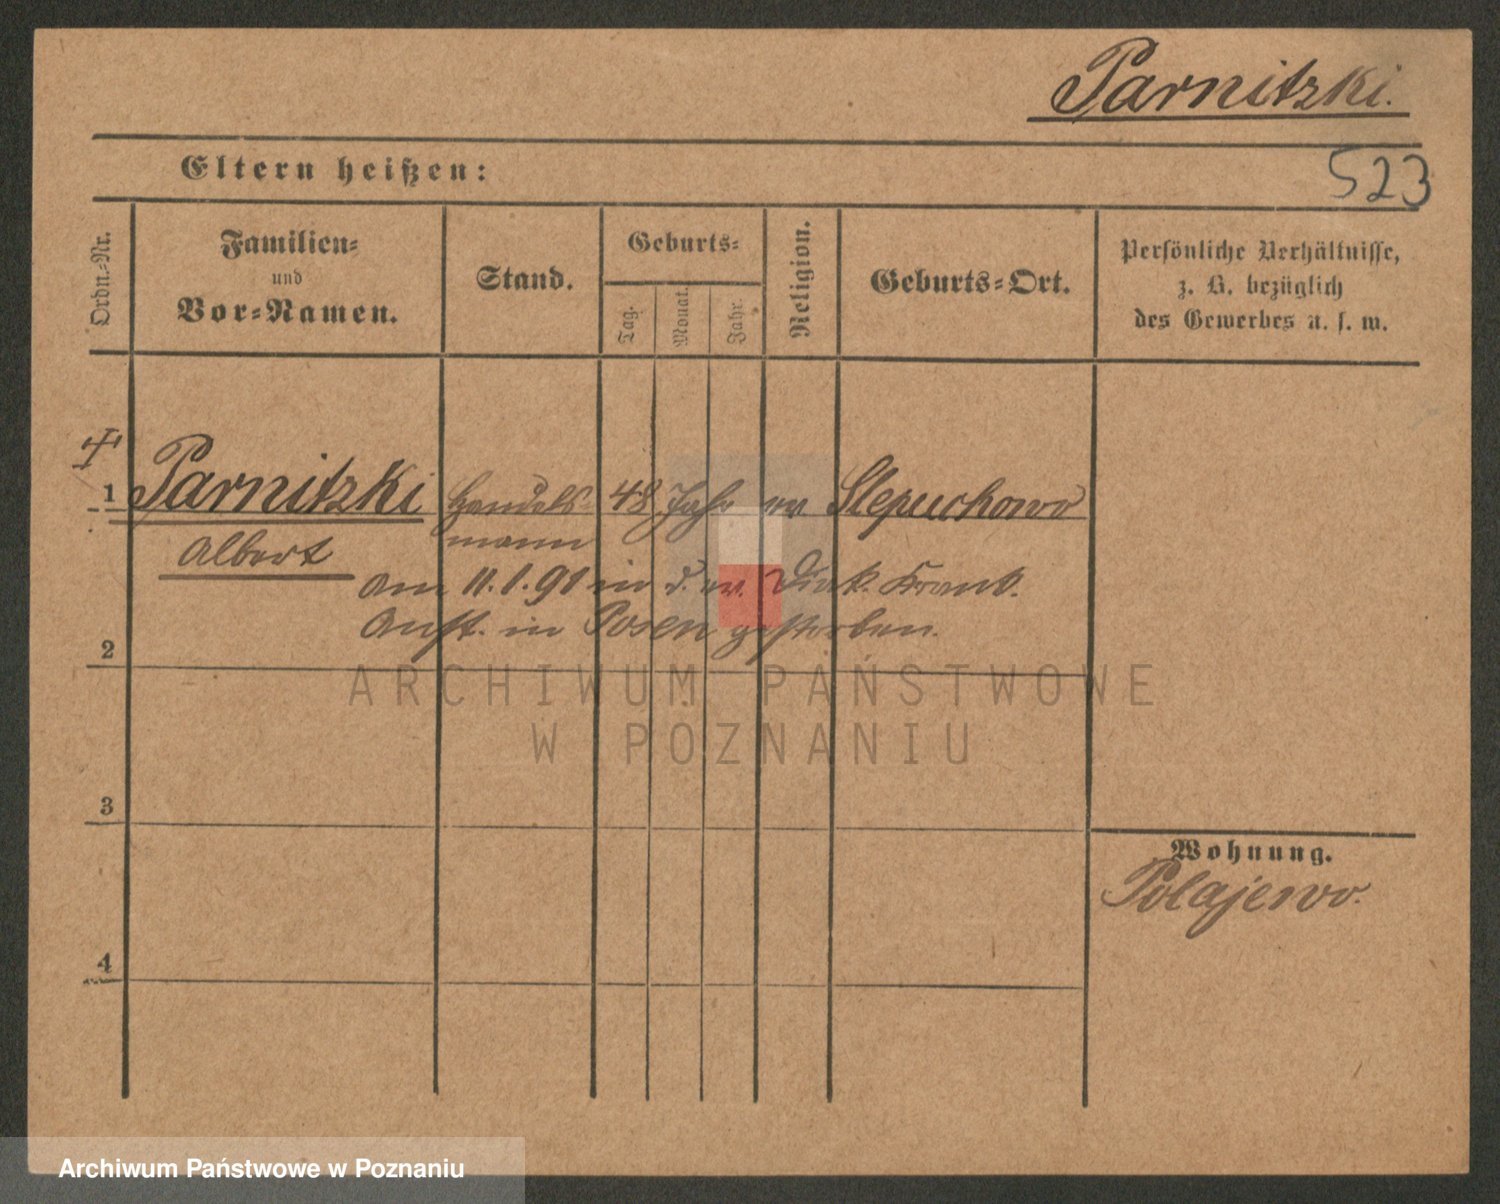 Parnitzki.
Eltern heißen:
523
Ordn.-Nr.
Familien-
und
Vor-Namen.
Stand.
Geburts-
Tag.
Monat.
Jahr.
Religion.
Geburts-Ort.
Persönliche Verhältnisse,
z. B. bezüglich
des Gewerbes u. s. w.
1
Parnitzki
Handels-
48 Jahr ev. Slepuchowo
mann
Albert
Am 11.1.91 in d. ev. Diak. Krank.
Anst. in Posen gestorben.
2
ARCHIWUM PAŃSTWOWE
W POZNANIU
3
Wohnung.
Polajewo.
4
Archiwum Państwowe w Poznaniu